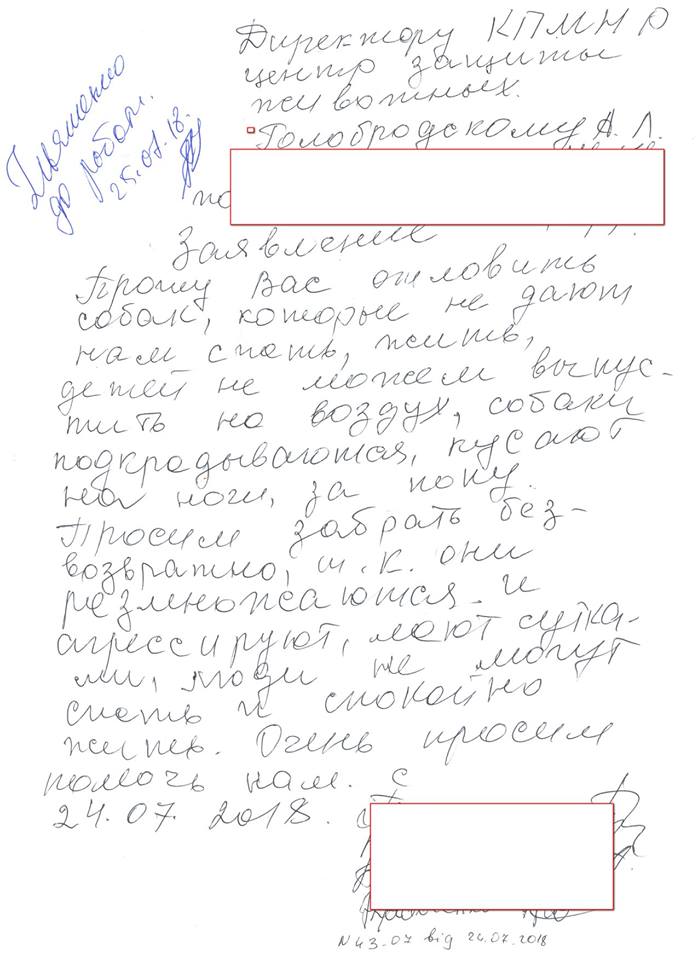 Директору КПМНР
центр защиты
животных.
Голобродскому А. Л.
по
до роботи.
25.07.18.
Заявление
Прошу Вас отловить
собак, которые не дают
нам спать, жить,
детей не можем выпус-
тить на воздух, собаки
подкрадываются, кусают
на ноги, за
Просим забрать без-
возвратно, т.к. они
размножаются и
агрессируют, лают сутка-
ми, люди не могут
спать и спокойно
жить. Очень просим
помочь нам. С
24.07.2018.
N43-07 від 24.07.2018